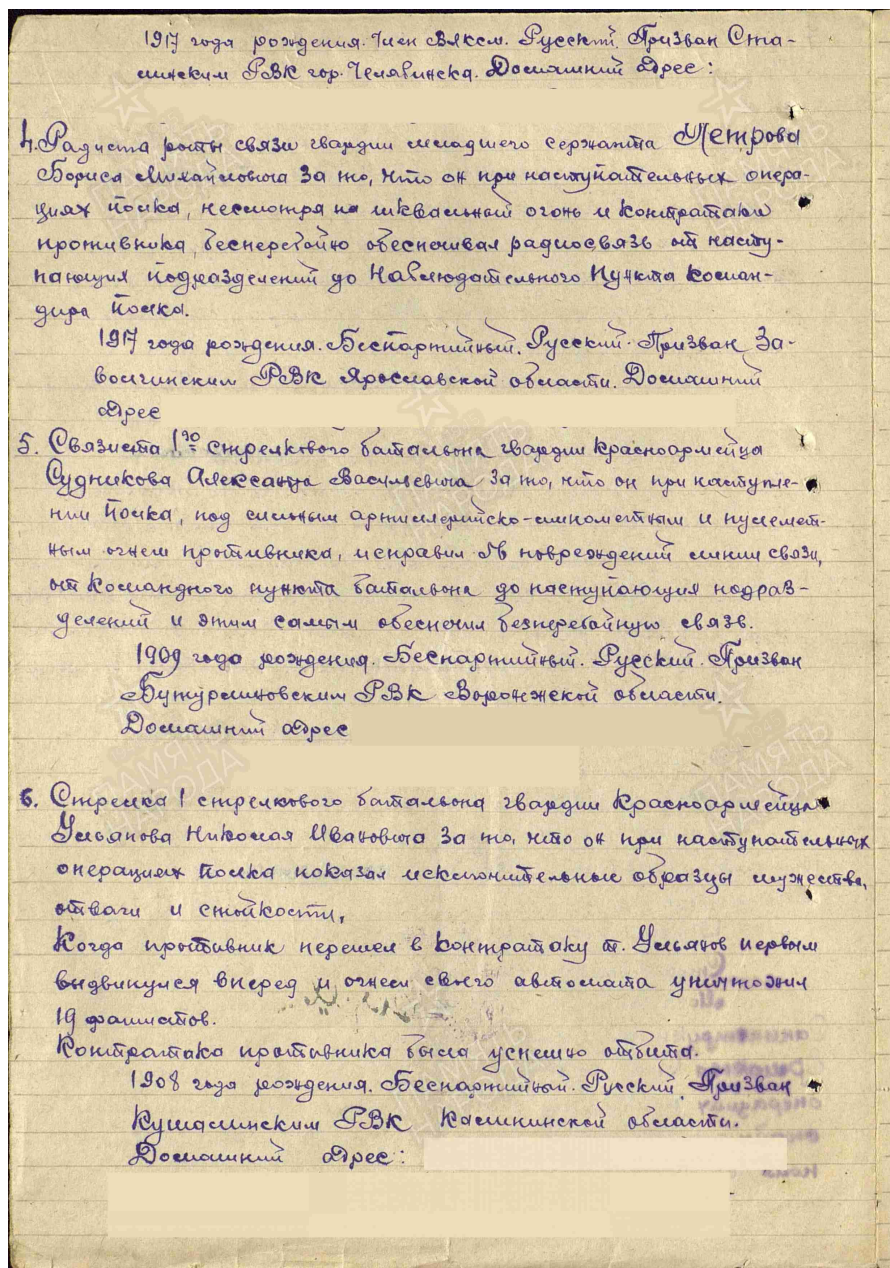 1917 года рождения. Член ВЛКСМ. Русский. Призван Ста-
линским РВК гор. Челябинска. Домашний адрес:
4. Радиста роты связи гвардии младшего сержанта Петрова
Бориса Михайловича за то, что он при наступательных опера-
циях полка, несмотря на шквальный огонь и контратаки
противника, бесперебойно обеспечивал радиосвязь от насту-
пающих подразделений до Наблюдательного Пункта коман-
дира полка.
1917 года рождения. Беспартийный. Русский. Призван За-
волжинским РВК Ярославской области. Домашний
адрес
5. Связиста 1го стрелкового батальона гвардии красноармейца
Судникова Александра Васильевича за то, что он при наступле-
нии полка, под сильным артиллерийско-минометным и пулемет-
ным огнем противника, исправил 56 повреждений линии связи,
от командного пункта батальона до наступающих подраз-
делений и этим самым обеспечил безперебойную связь.
1909 года рождения. Беспартийный. Русский. Призван
Бутурлиновским РВК Воронжской области.
Домашний адрес
6. Стрелка 1 стрелкового батальона гвардии красноармейца
Ульянова Николая Ивановича за то, что он при наступательных
операциях полка показал исключительные образцы мужества,
отваги и стойкости.
Когда противник перешел в контратаку т. Ульянов первым
выдвинулся вперед и огнем своего автомата уничтожил
19 фашистов.
Контратака противника была успешно отбита.
1908 года рождения. Беспартийный. Русский. Призван
Кушалинским РВК Калининской области.
Домашний адрес:
ПАМЯТЬ НАРОДА